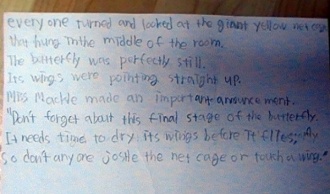 every one turned and looked at the giant yellow net cage
that hung in the middle of the room.
The butterfly was perfectly still.
Its wings were pointing straight up.
Mrs Mackle made an important announcement.
"Don't forget about this final stage of the butterfly.
It needs time to dry its wings before it flies,
So don't anyone jostle the net cage or touch a wing."